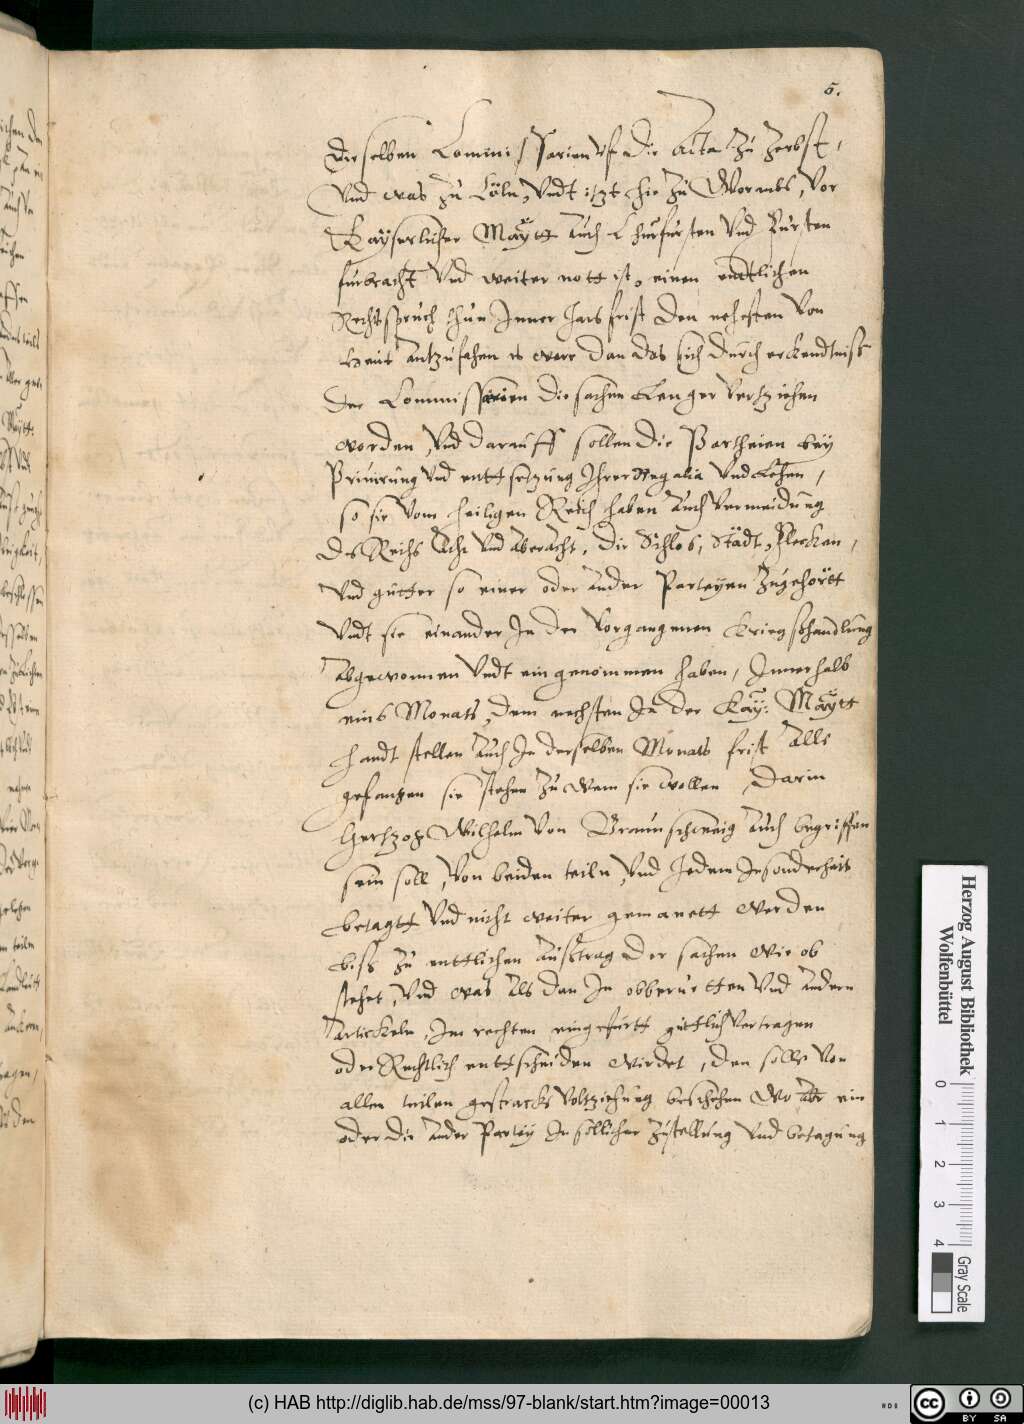 5.
Derselben Commissarien uf die Acta zu Zerbst,
Und was zu Cöln, Undt itzt hie zu Wormbs, Vor
Kayserlicher Maÿtt auch Churfursten Und Fursten
furbracht Und weiter nott ist, einen enttlichen
Rechtspruch thun Inner Jars frist den nehesten Von
heut antzufahen es were dan das sich durch erkendtniß
der Commissarien die sachen Lenger Vertziehen
worden, Und darauff sollen die Partheien beÿ
Privirung Und enttsetzung Ihrer Regalia Und Lehen,
so sie Vom heiligen Reich haben auch Vermeidung
des Reichs Acht Und aberacht, die Schlos, Städt, Flecken,
Und gutter so einer oder ander Parteÿen zugehörtt
Undt sie einander In der Vorgangenen Kriegßhandlung
abgewonnen Undt eingenommen haben, Innerhalb
eins Monats, dem nechsten In der Kaÿ: Maÿtt
handt stellen auch In derselben Monats frist alle
gefangen sie stehen zu wem sie wollen, Darin
Hertzog Wilhelm Von Braunschweig auch begriffen
sein soll, Von beiden teiln, Und Jedem Insonderheit
betagtt Und nicht weiter gemanett werden
biß zu enttlichen außtrag der sachen wie ob
stehet, Und was als dan In obberurtten Und andern
artickeln, Im rechten eingefurtt guttlich Vertragen
oder Rechtlich enttscheiden wirdet, dem solle Von
allen teilen gestracks Voltziehung beschehen Wo aber ein
oder die ander Parteÿ In sollicher zustellung Und betagung
Herzog August Bibliothek
Wolfenbüttel
0 1 2 3 4
Gray Scale
(c) HAB http://diglib.hab.de/mss/97-blank/start.htm?image=00013
cc BY SA